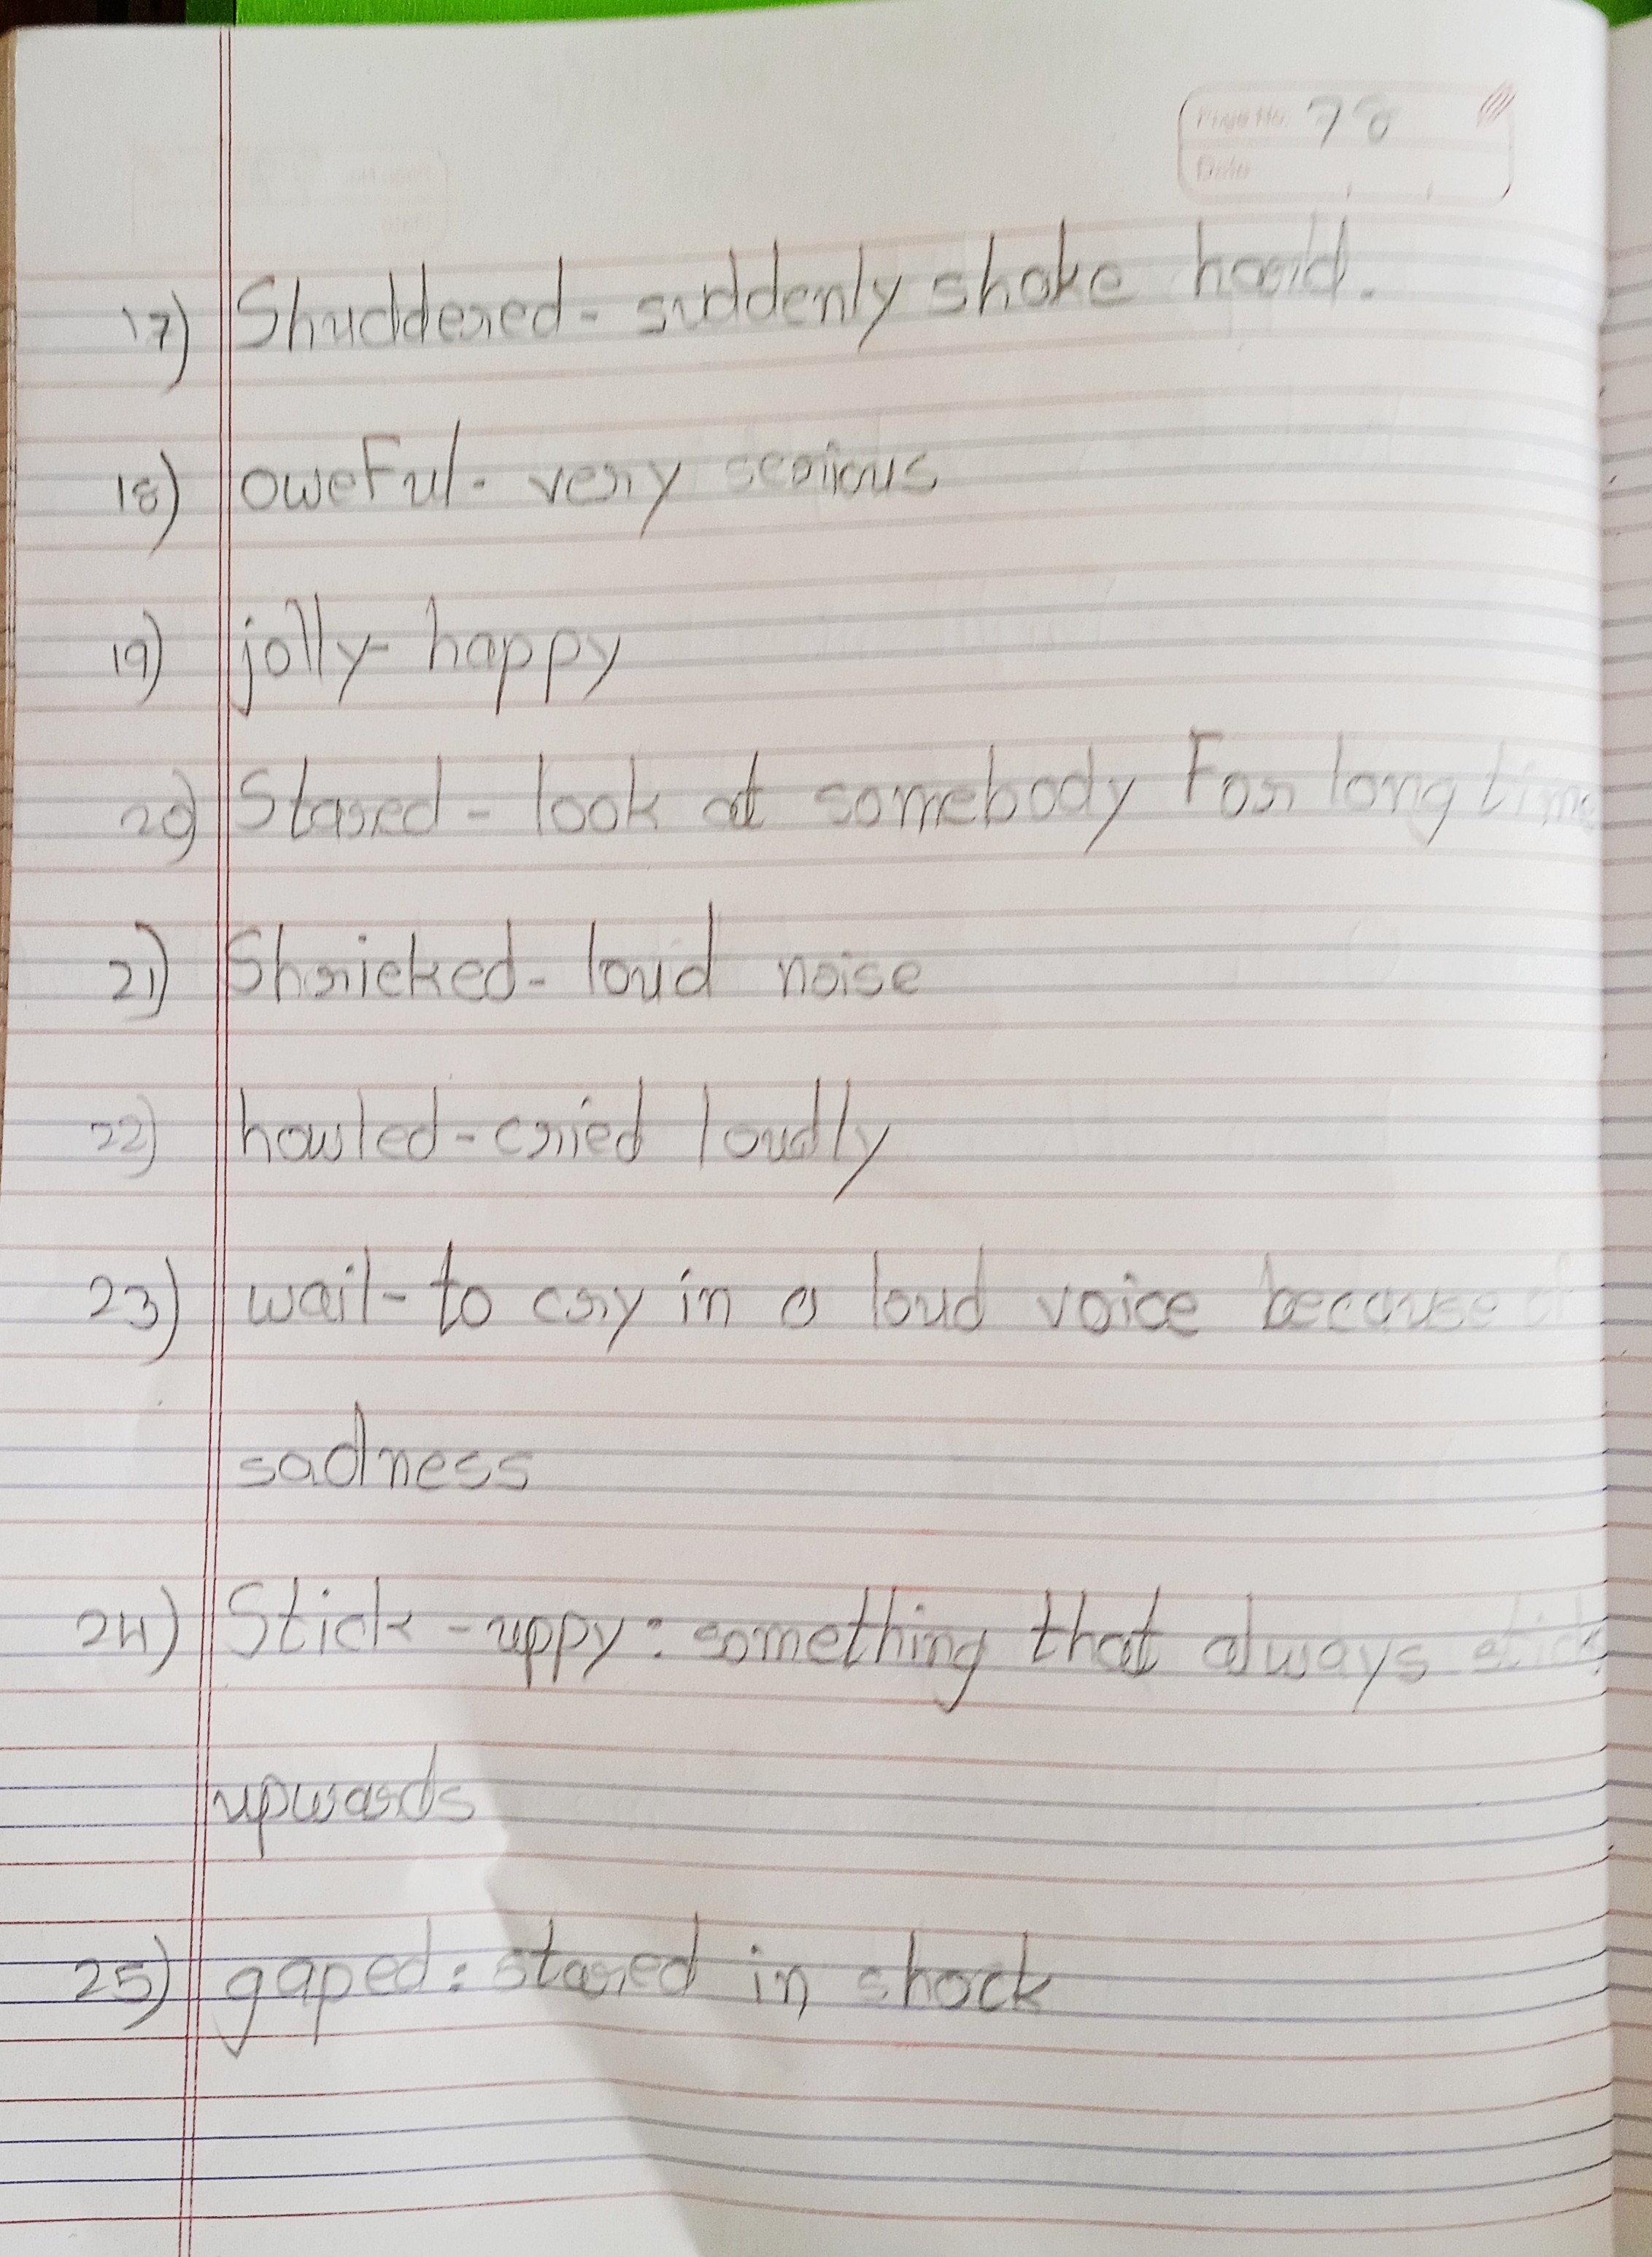 Page No. 78
Date
17) Shuddered - suddenly shake
18) oweFul - very serious
19) jolly - happy
20) Stared - look at somebody For long time
21) Shricked - loud noise
22) howled - cried loudly
23) wail - to cry in a loud voice because of
sadness
24) Stick - uppy : something that always stick
upwards
25) gaped : stared in shock